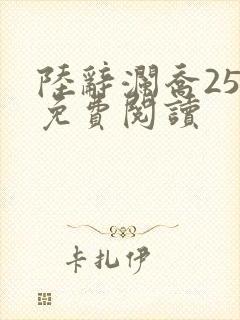 陸辭瀾喬25
免費閱讀
卡扎伊